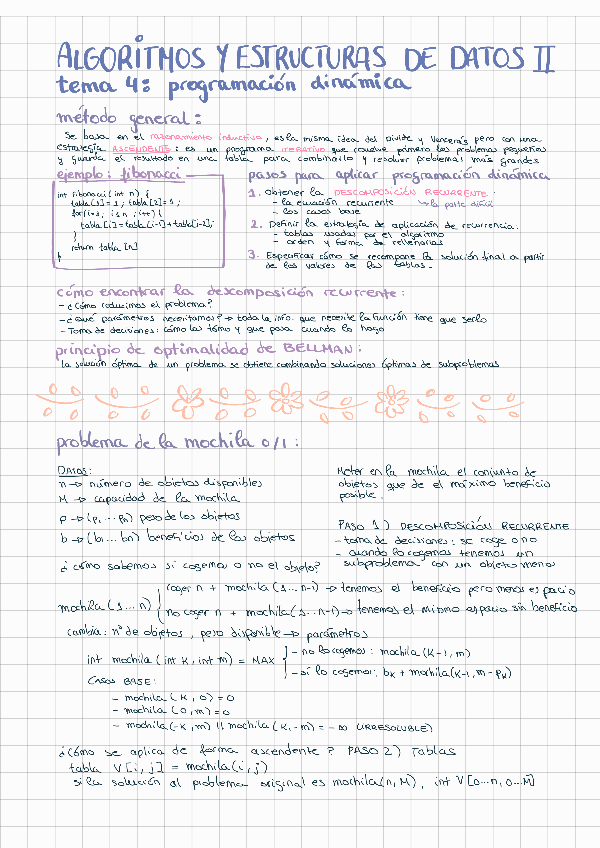 ALGORITMOS Y ESTRUCTURAS DE DATOS II
tema 4: programación dinámica
método general:
Se basa en el razonamiento inductivo, es la misma idea del Divide y Vencerás pero con una
estrategia ASCENDENTE: es un programa ITERATIVO que resuelve primero los problemas pequeños
y guarda el resultado en una tabla para combinarlo y resolver problemas más grandes
ejemplo: fibonacci
int fibonacci (int n) {
tabla[1]=1; tabla[2]=1;
for(i=3; i≤n; i++) {
tabla[i]=tabla[i-1]+tabla[i-2];
}
return tabla[n]
}
pasos para aplicar programación dinámica
1. Obtener la DESCOMPOSICIÓN RECURRENTE:
- la ecuación recurrente ↳ la parte difícil
- los casos base
2. Definir la estrategia de aplicación de recurrencia.
- tablas usadas por el algoritmo
- orden y forma de rellenarlas
3. Especificar cómo se recompone la solución final a partir
de los valores de las tablas.
cómo encontrar la descomposición recurrente:
- ¿Cómo reducimos el problema?
- ¿Qué parámetros necesitamos? → toda la info. que necesite la función tiene que serlo
- Toma de decisiones: cómo las tomo y que pasa cuando lo hago
principio de optimalidad de BELLMAN:
la solución óptima de un problema se obtiene combinando soluciones óptimas de subproblemas
problema de la mochila 0/1:
DATOS:
n → número de objetos disponibles
M → capacidad de la mochila
p → (p₁...pₙ) peso de los objetos
b → (b₁...bₙ) beneficios de los objetos
Meter en la mochila el conjunto de
objetos que de el máximo beneficio
posible.
PASO 1) DESCOMPOSICIÓN RECURRENTE
- toma de decisiones: se coge o no
- cuando lo cogemos tenemos un
subproblema con un objeto menos
¿cómo sabemos si cogemos o no el objeto?
mochila(1...n) { coger n + mochila(1...n-1) → tenemos el beneficio pero menos espacio
no coger n + mochila(1...n-1) → tenemos el mismo espacio sin beneficio
cambia: nº de objetos, peso disponible → parámetros
int mochila (int k, int m) = MAX { - no lo cogemos: mochila(k-1, m)
- sí lo cogemos: bₖ + mochila(k-1, m-pₖ)
CASOS BASE:
- mochila (k, 0) = 0
- mochila (0, m) = 0
- mochila(-k, m) || mochila (k, -m) = -∞ (IRRESOLUBLE)
¿Cómo se aplica de forma ascendente? PASO 2) Tablas
tabla V[i, j] = mochila(i, j)
si la solución al problema original es mochila(n, M), int V[0...n, 0...M]